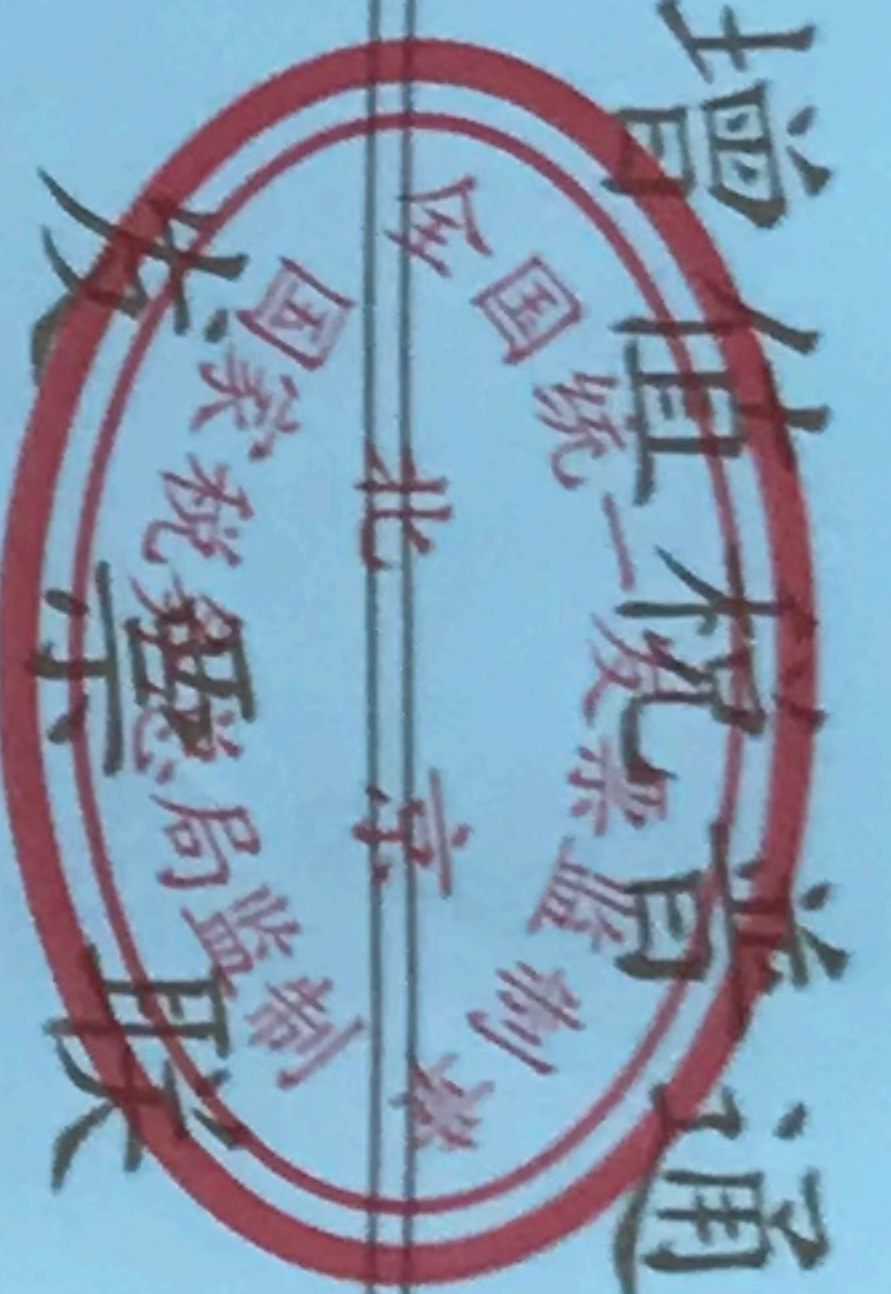 增值税普通
全国统一发票监制章
北京
国家税务总局监制
发票联